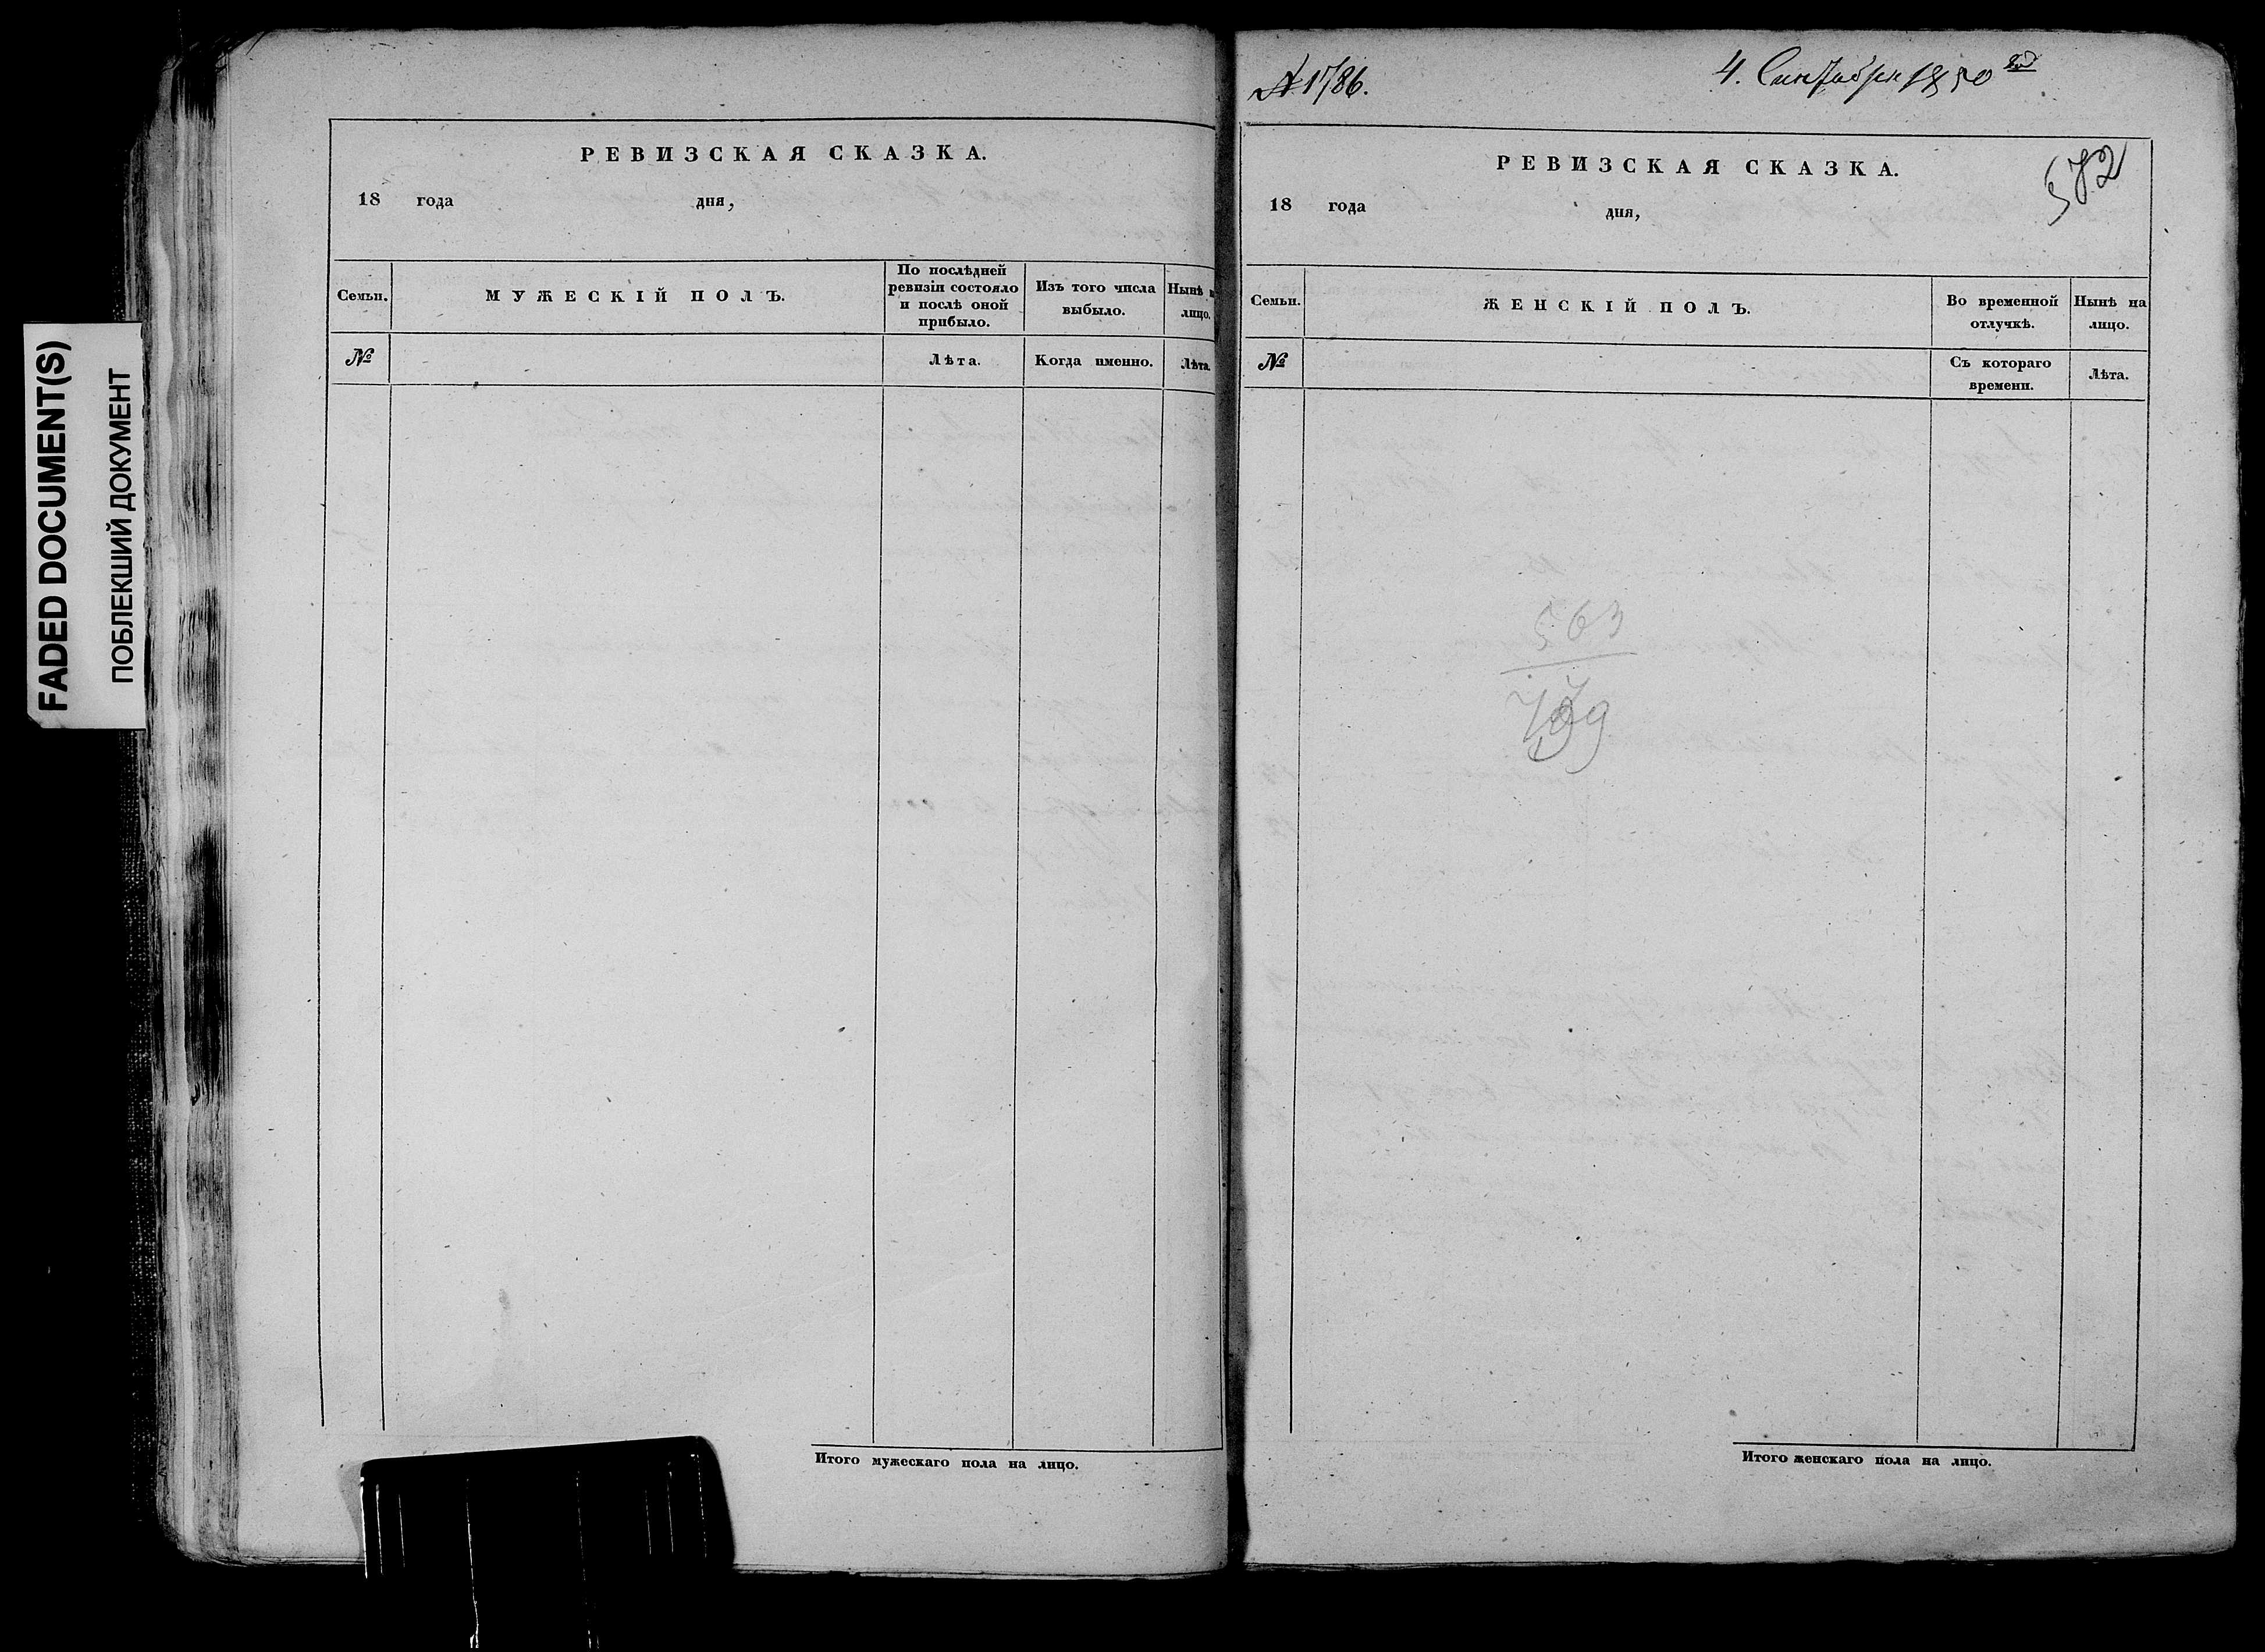 FADED DOCUMENT(S)
ПОБЛЕКШИЙ ДОКУМЕНТ
РЕВИЗСКАЯ СКАЗКА.
18 года дня,
Семьи.
МУЖЕСКІЙ ПОЛЪ.
По послѣдней
ревизіи состояло
и послѣ оной
прибыло.
Изъ того числа
выбыло.
Нынѣ н
лицо.
№
Лѣта.
Когда именно.
Лѣта.
Итого мужескаго пола на лицо.
№ 1786.
4. Сентября 1850 год
572
РЕВИЗСКАЯ СКАЗКА.
18 года дня,
Семьи.
ЖЕНСКІЙ ПОЛЪ.
Во временной
отлучкѣ.
Нынѣ на
лицо.
№
Съ котораго
времени.
Лѣта.
563
Итого женскаго пола на лицо.